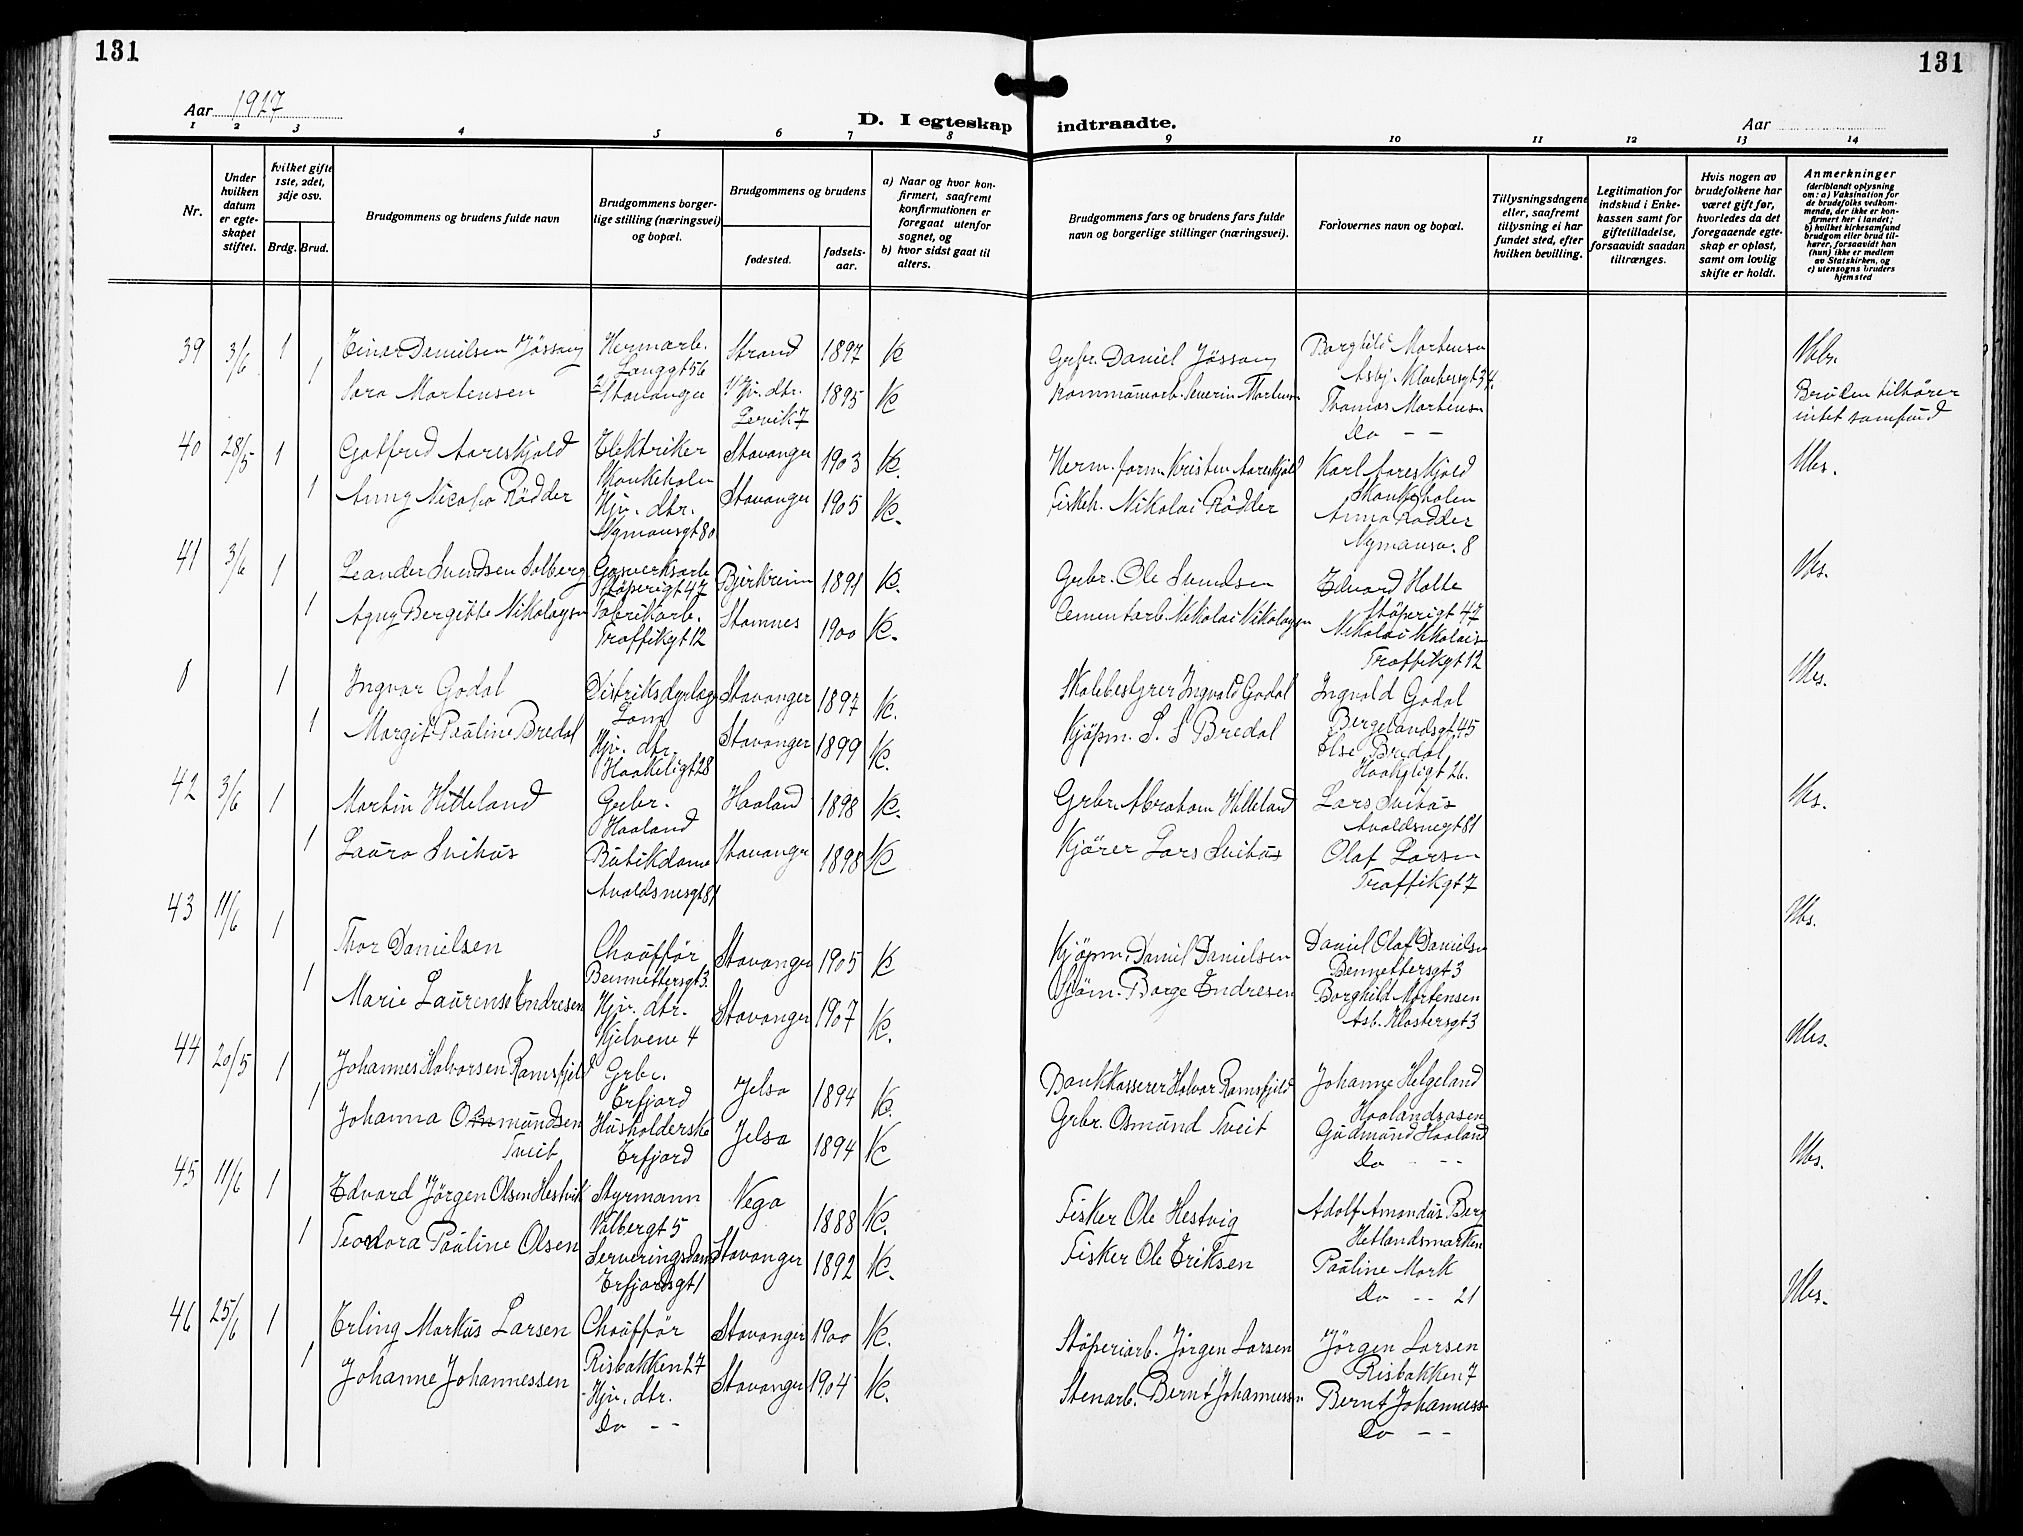 131
131
Aar 1927
D. I egteskap indtraadte.
Aar
1 2 3 4 5 6 7 8 9 10 11 12 13 14
Nr.
Under hvilken datum er egte-skapet stiftet.
hvilket gifte 1ste, 2det, 3dje osv.
Brdg. Brud.
Brudgommens og brudens fulde navn
Brudgommens borger-lige stilling (næringsvei) og bopæl.
Brudgommens og brudens
fødested.
fødsels-aar.
a) Naar og hvor kon-firmert, saafremt konfirmationen er foregaat utenfor sognet, og
b) hvor sidst gaat til alters.
Brudgommens fars og brudens fars fulde navn og borgerlige stillinger (næringsvei).
Forlovernes navn og bopæl.
Tillysningsdagene eller, saafremt tillysning ei har fundet sted, efter hvilken bevilling.
Legitimation for indskud i Enke-kassen samt for giftetilladelse, forsaavidt saadan tiltrænges.
Hvis nogen av brudefolkene har været gift før, hvorledes da det foregaaende egte-skap er opløst, samt om lovlig skifte er holdt.
Anmerkninger
(deriblandt oplysning om: a) Vaksination for de brudefolks vedkom-mende, der ikke er kon-firmert her i landet; b) hvilket kirkesamfund brudgom eller brud til-hører, forsaavidt han (hun) ikke er medlem av Statskirken, og c) utensogns bruders hjemsted
39 3/6 1 Einar Danielsen Jøssang Hermarb. Langgt 56 Strand 1897 K Grbr. Daniel Jøssang Borghild Mortensen Asbj. Klostersgt 34
1 Sara Mortensen Stavanger Hjv. dtr. Lervik 7 1895 K Kommunearb. Severin Mortensen Thomas Mortensen Do - - Bruden tilhører intet samfund
40 28/5 1 Gotfred Aareskjold Elektriker Skankeholen Stavanger 1903 K. Herm. form. Kristen Aareskjold Karl Aareskjold Skankeholen
1 Anny Nicoho Rødder Hjv. dtr. Nymansgt 80 Stavanger 1905 K. Fiskeh. Nikolai Rødder Anna Rødder Nymansv. 8
41 3/6 1 Leander Svendsen Solberg Gasverksarb. Støperigt 47 Bjerkreim 1891 K. Grbr. Ole Svendsen Edvard Holte Støperigt 47
1 Agny Bergitte Nikolaysen Fabrikarb. Traffikgt 12 Stamnes 1900 K. Cementarb. Nikolai Nikolaysen Nikolai Nikolaisen Traffikgt 12
1 Ingvar Godal Distriksdyrlæge Lom Stavanger 1897 K. Skolebestyrer Ingvald Godal Ingvald Godal Bergelandsgt 45
1 Margit Pauline Bredal Hjv. dtr. Haakeligt 28 Stavanger 1899 K. Kjøpm. S. S Bredal Else Bredal Haakeligt 26.
42 3/6 1 Martin Helleland Grbr. Haaland Haaland 1898 K. Grbr. Abraham Helleland Lars Svihus Avaldsnesgt 81
1 Laura Svihus Butikdame Avaldsnesgt 81 Stavanger 1898 K Kjører Lars Svihus Olaf Larsen Traffikgt 7
43 11/6 1 Thor Danielsen Chauffør Bennettersgt 3. Stavanger 1905 K Kjøpm. Daniel Danielsen Daniel Olaf Danielsen Bennettersgt 3
1 Marie Laurense Endresen Hjv. dtr. Kjelvene 4 Stavanger 1907 K. Sjøm. Børge Endresen Borghild Mortensen Asb. Klostersgt 3
44 20/5 1 Johannes Halvorsen Ramsfjeld Grbr. Erfjord Jelsa 1894 K. Bankkasserer Halvor Ramsfjeld Johanne Helgeland Haalandsåsen
1 Johanna Osmundsen Tveit Husholderske Erfjord Jelsa 1894 K Grbr. Osmund Tveit Gudmund Haaland Do - - -
45 11/6 1 Edvard Jørgen Olsen Hestvik Styrmann Valbergt 5 Vega 1888 K. Fisker Ole Hestvig Adolf Amandus Berg Hetlandsmarken
1 Teodora Pauline Olsen Serveringsdame Erfjordsgt 1 Stavanger 1892 K. Fisker Ole Eriksen Pauline Mork Do - - 21
46 25/6 1 Erling Markus Larsen Chauffør Risbakken 27 Stavanger 1900 K. Støperiarb. Jørgen Larsen Jørgen Larsen Risbakken 7
1 Johanne Johannessen Hjv. dtr. Do - - Stavanger 1904 K. Stenarb. Bernt Johannessen Bernt Johannessen Do - -